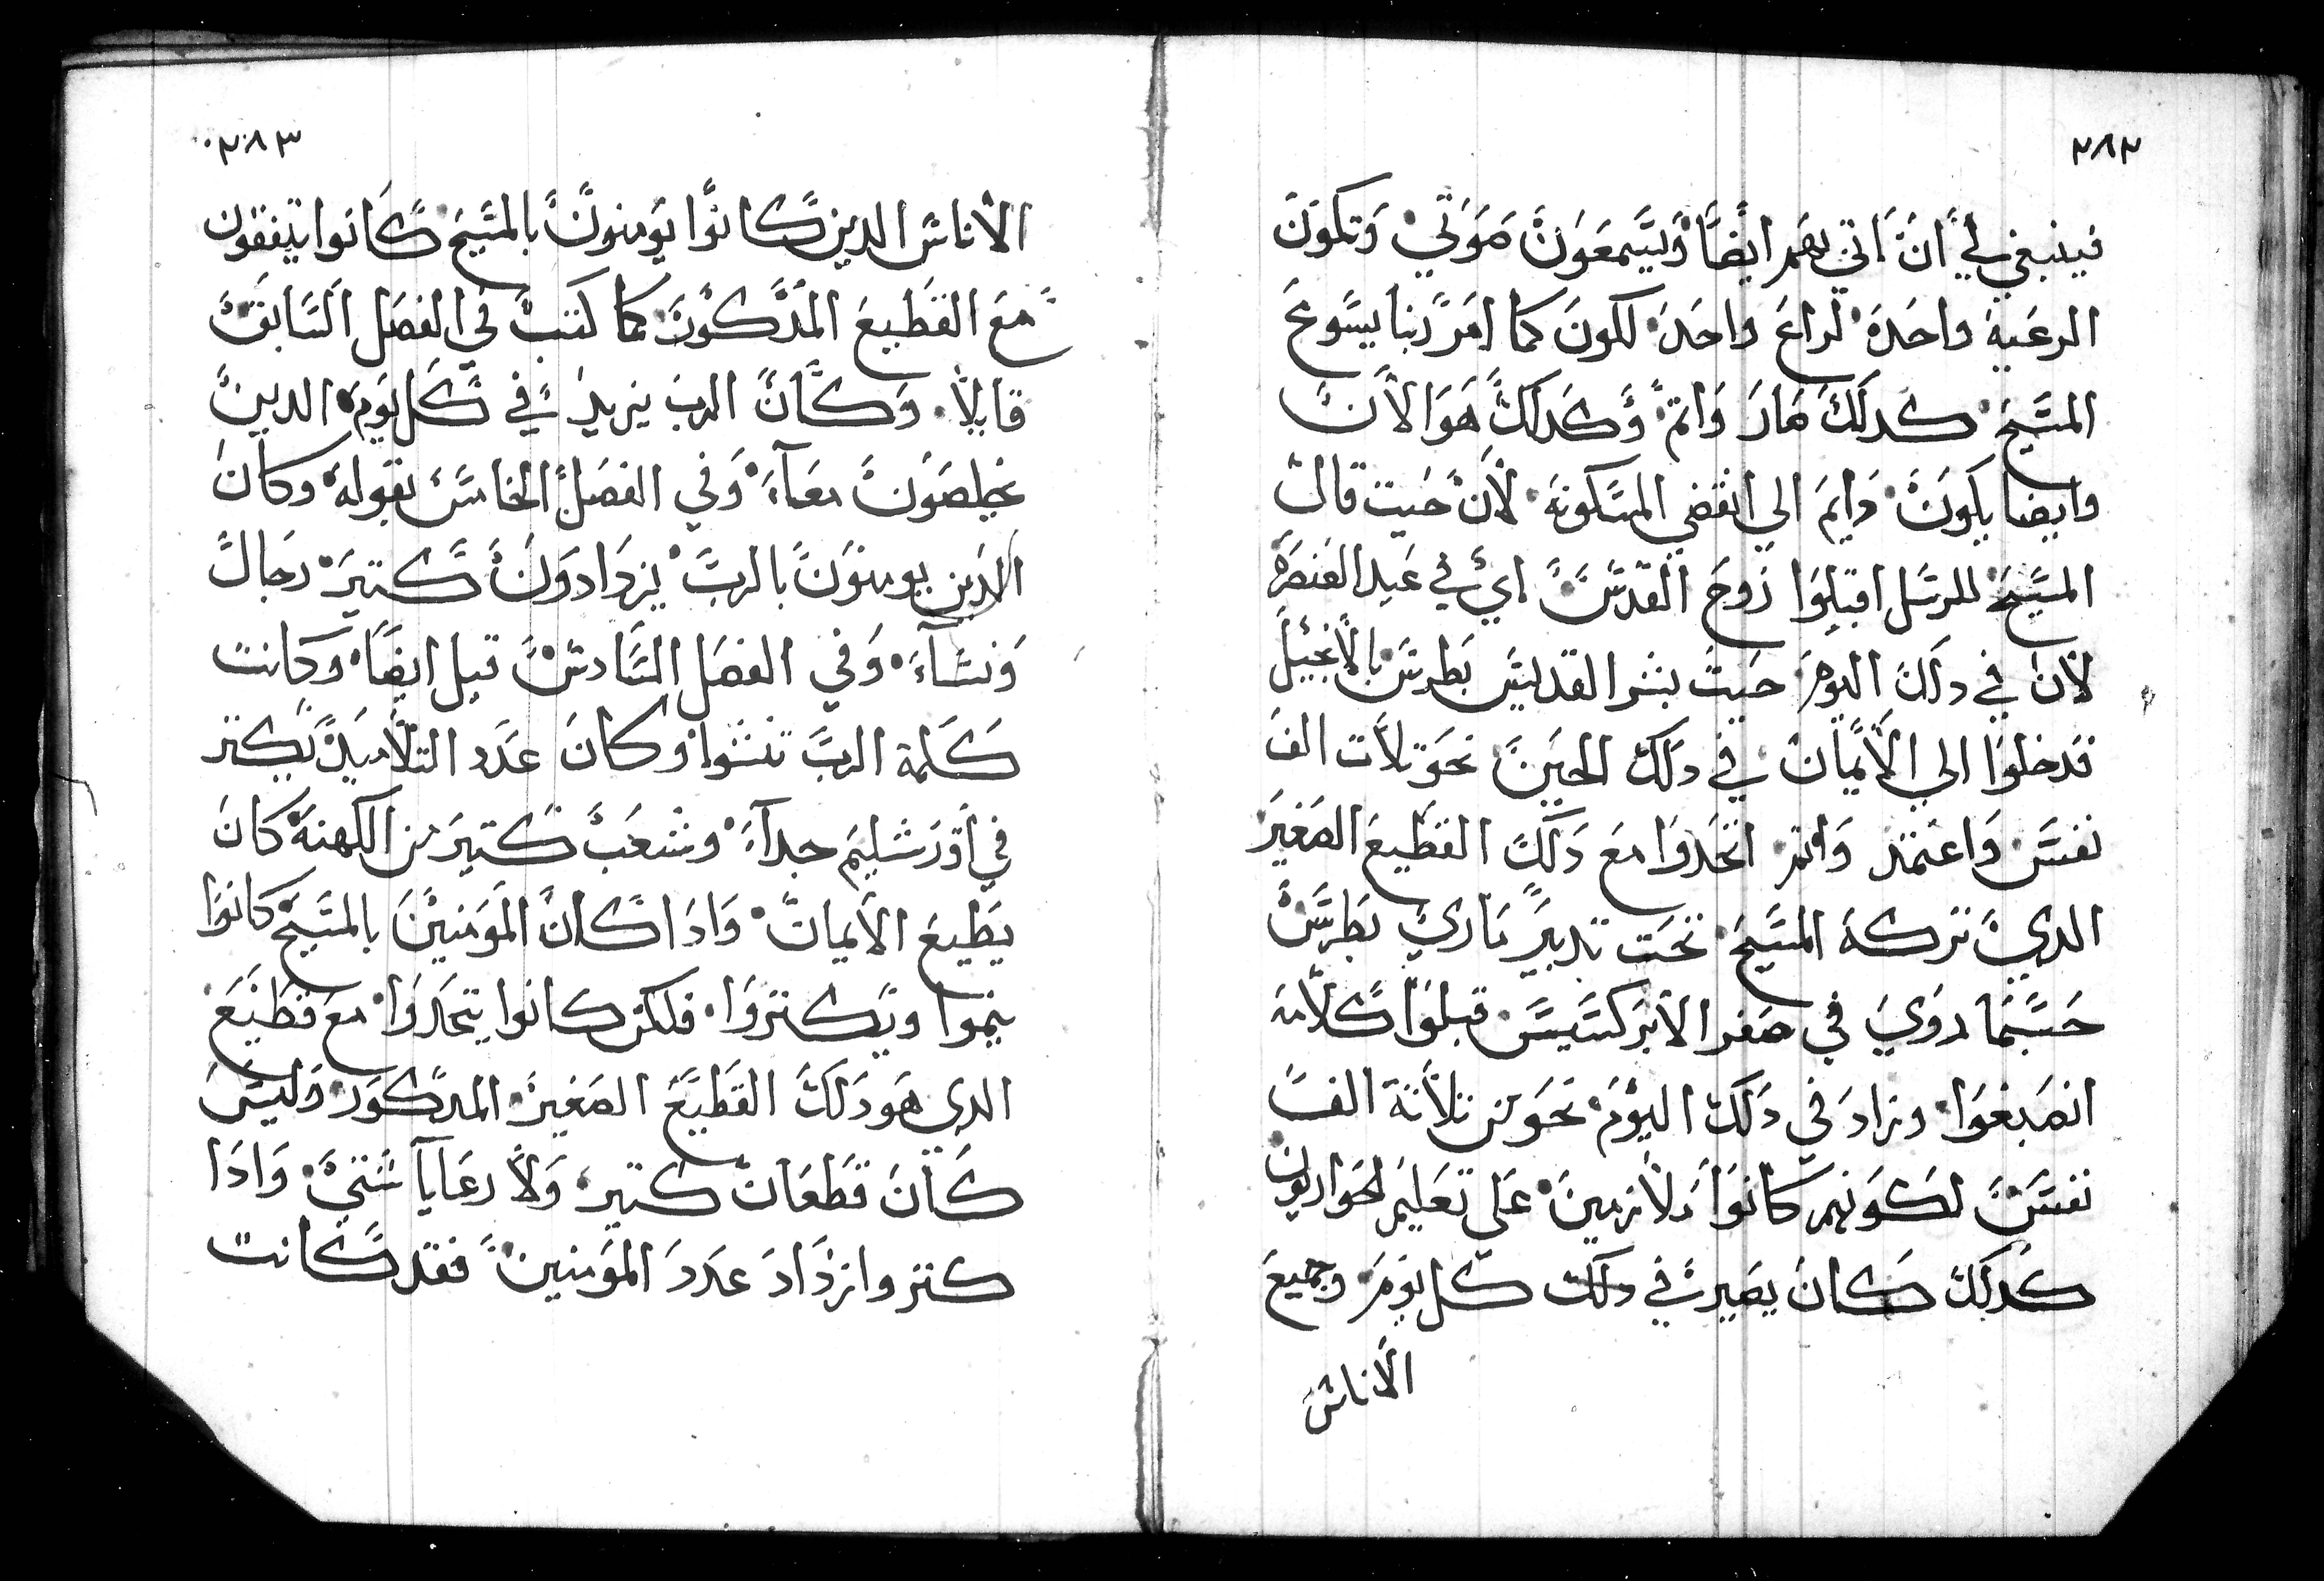 ٢٨٢
فينبغي لي ان اتي بهم ايضا وليسمعون صوتي وتكون
الرعية واحدة لراع واحدة لكون كما امر ربنا يسوع
المسيح كدلك صار واتم وكدلك هو الان
وايضا يكون دايم الي انقضي المسكونة لان حيت قال
المسيح للرسل اقبلوا روح القدس اي في عيد العنصرة
لان في دلك اليوم حيت بشر القديس بطرس بالانجيل
فدخلوا الي الايمان في دلك الحين نحو تلات الف
نفس واعتمد واتم اتحدوا مع دلك القطيع الصغير
الدي تركه المسيح تحت تدبير ماري بطرس
حسبما روي في صفر الابركسيس قبلوا كلامه
انصبغوا وزاد في دلك اليوم نحو من تلاتة الف
نفس لكونهم كانوا ولازمين علي تعليم الحواريون
كدلك كان يصير في دلك كل يوم وجميع
الاناس
٢٨٣
الاناس الدين كانوا يومنون بالمسيح كانوا يتفقون
مع القطيع المدكون كما كتب في الفصل السابق
قايلا وكان الرب يزيد في كل يوم الدين
يخلصون معاء وفي الفصل الخامس بقوله وكان
الدين يومنون بالرب يزدادون كتير رجال
ونساء وفي الفصل السادس قيل ايضا وكانت
كلمة الرب تنشوا وكان عدد التلاميد يكتر
في اورشليم جداء وشعب كتير من الكهنة كان
يطيع الايمان وادا كان المومنين بالمسيح كانوا
ينموا ويكتروا فلكن كانوا يتحدوا مع قطيع
الدي هو دلك القطيع الصغير المدكور وليس
كان قطعان كتير ولا رعايا شتي وادا
كتر وازداد عدد المومنين فقد كانت